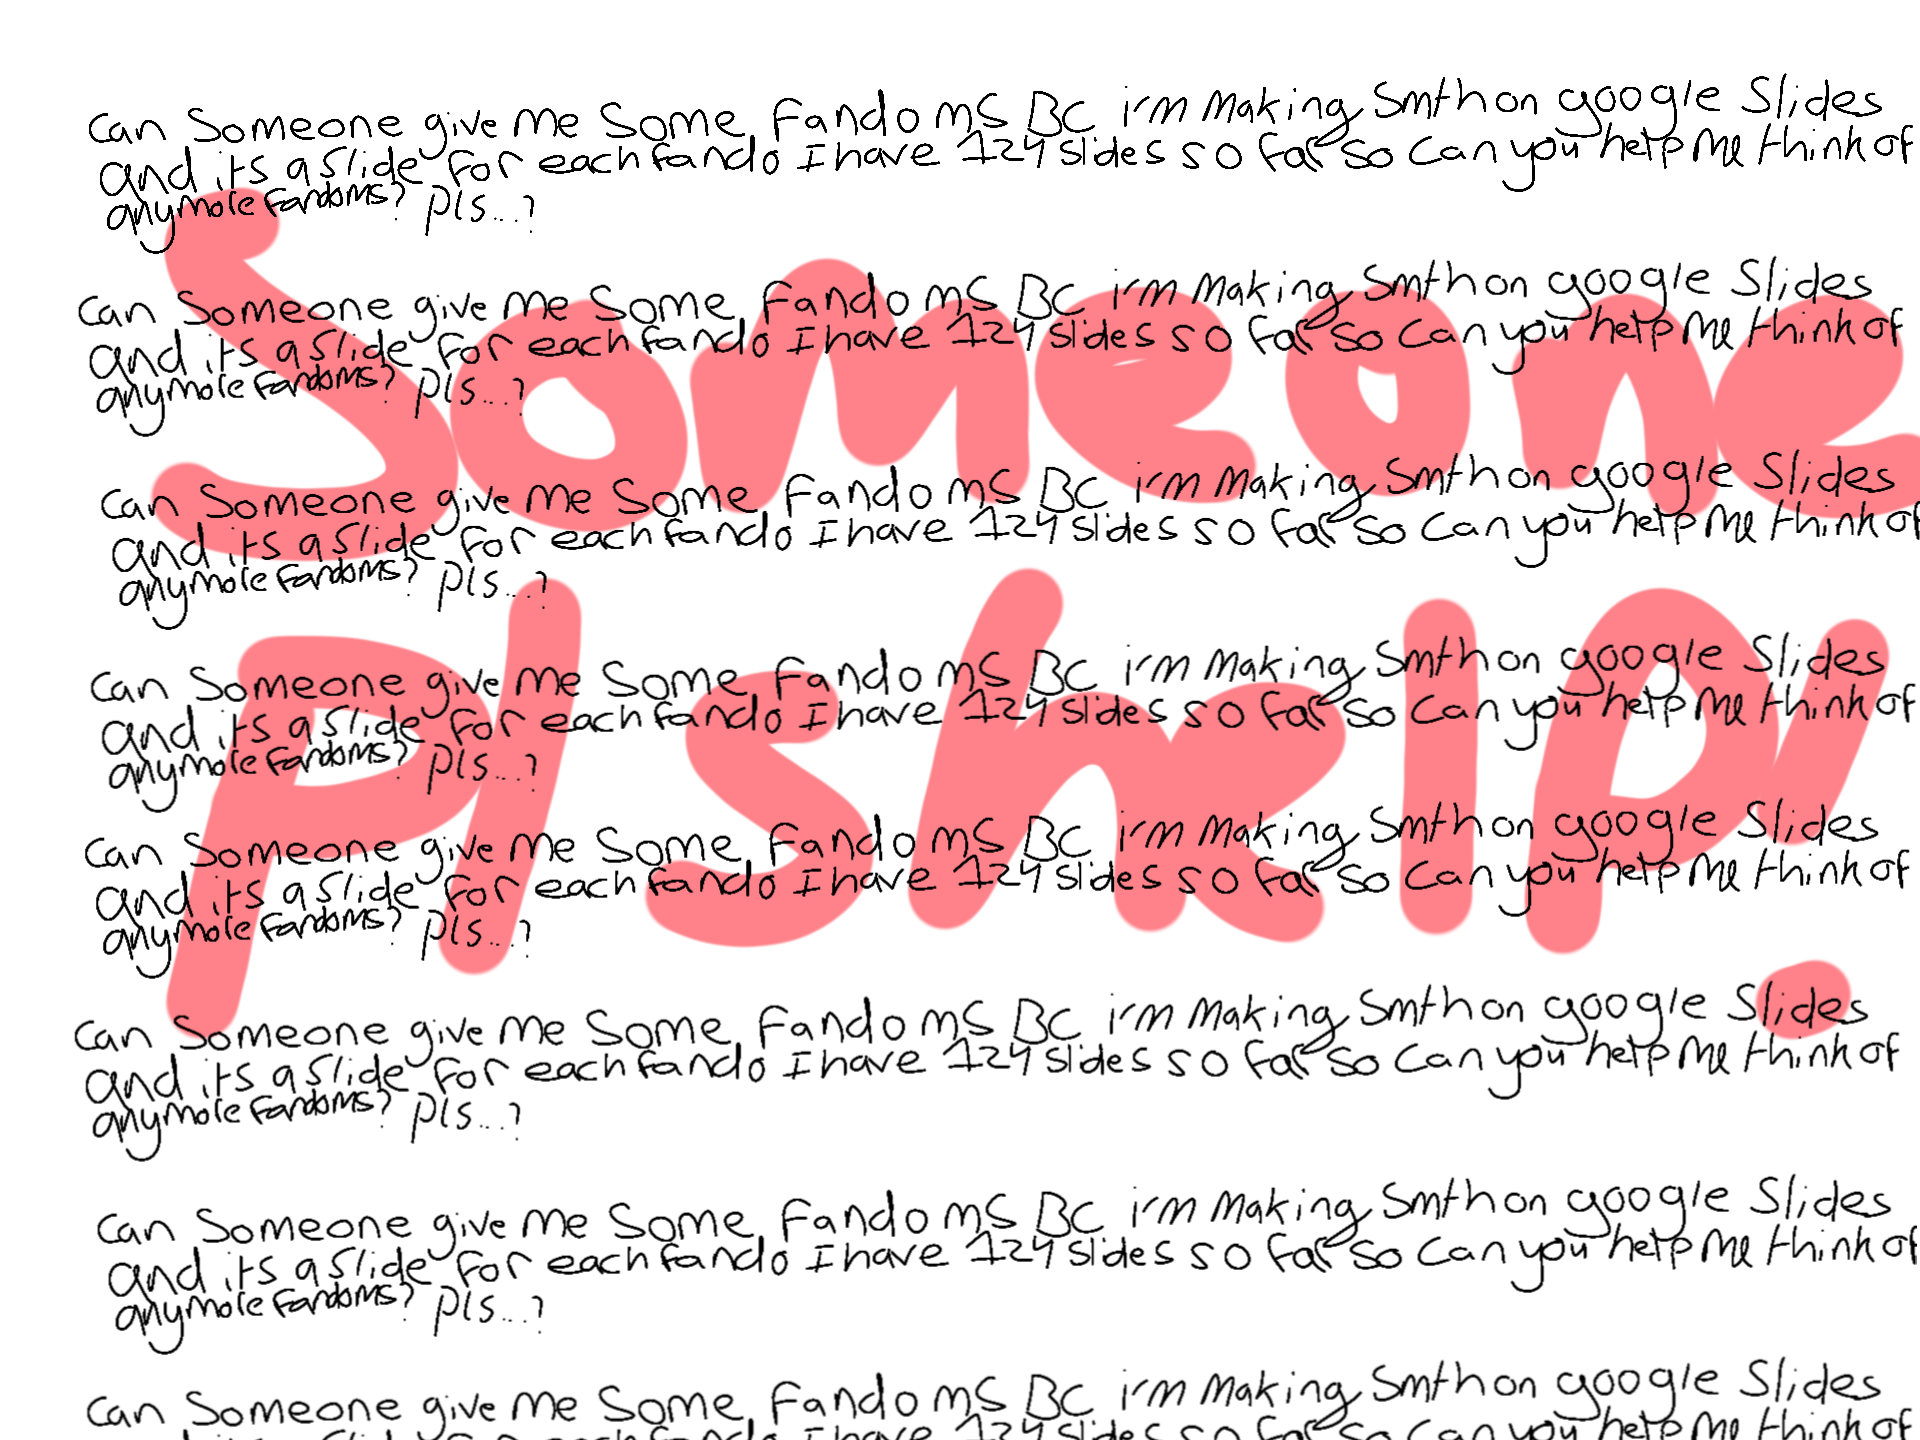 can Someone give me Some Fandoms BC i'm Making Smth on google Slides
and its a slide for each fando I have 124 slides so far so can you help me think of
anymore fandoms? pls...?
can Someone give me Some Fandoms BC i'm Making Smth on google Slides
and its a slide for each fando I have 124 slides so far so can you help me think of
anymore fandoms? pls...?
Someone
can Someone give me Some Fandoms BC i'm Making Smth on google Slides
and its a slide for each fando I have 124 slides so far so can you help me think of
anymore fandoms? pls...?
can Someone give me Some Fandoms BC i'm Making Smth on google Slides
and its a slide for each fando I have 124 slides so far so can you help me think of
anymore fandoms? pls...?
pls help!
can Someone give me Some Fandoms BC i'm Making Smth on google Slides
and its a slide for each fando I have 124 slides so far so can you help me think of
anymore fandoms? pls...?
can Someone give me Some Fandoms BC i'm Making Smth on google Slides
and its a slide for each fando I have 124 slides so far so can you help me think of
anymore fandoms? pls...?
can Someone give me Some Fandoms BC i'm Making Smth on google Slides
and its a slide for each fando I have 124 slides so far so can you help me think of
anymore fandoms? pls...?
can Someone give me Some Fandoms BC i'm Making Smth on google Slides
I have 124 slides so far so can you help me think of